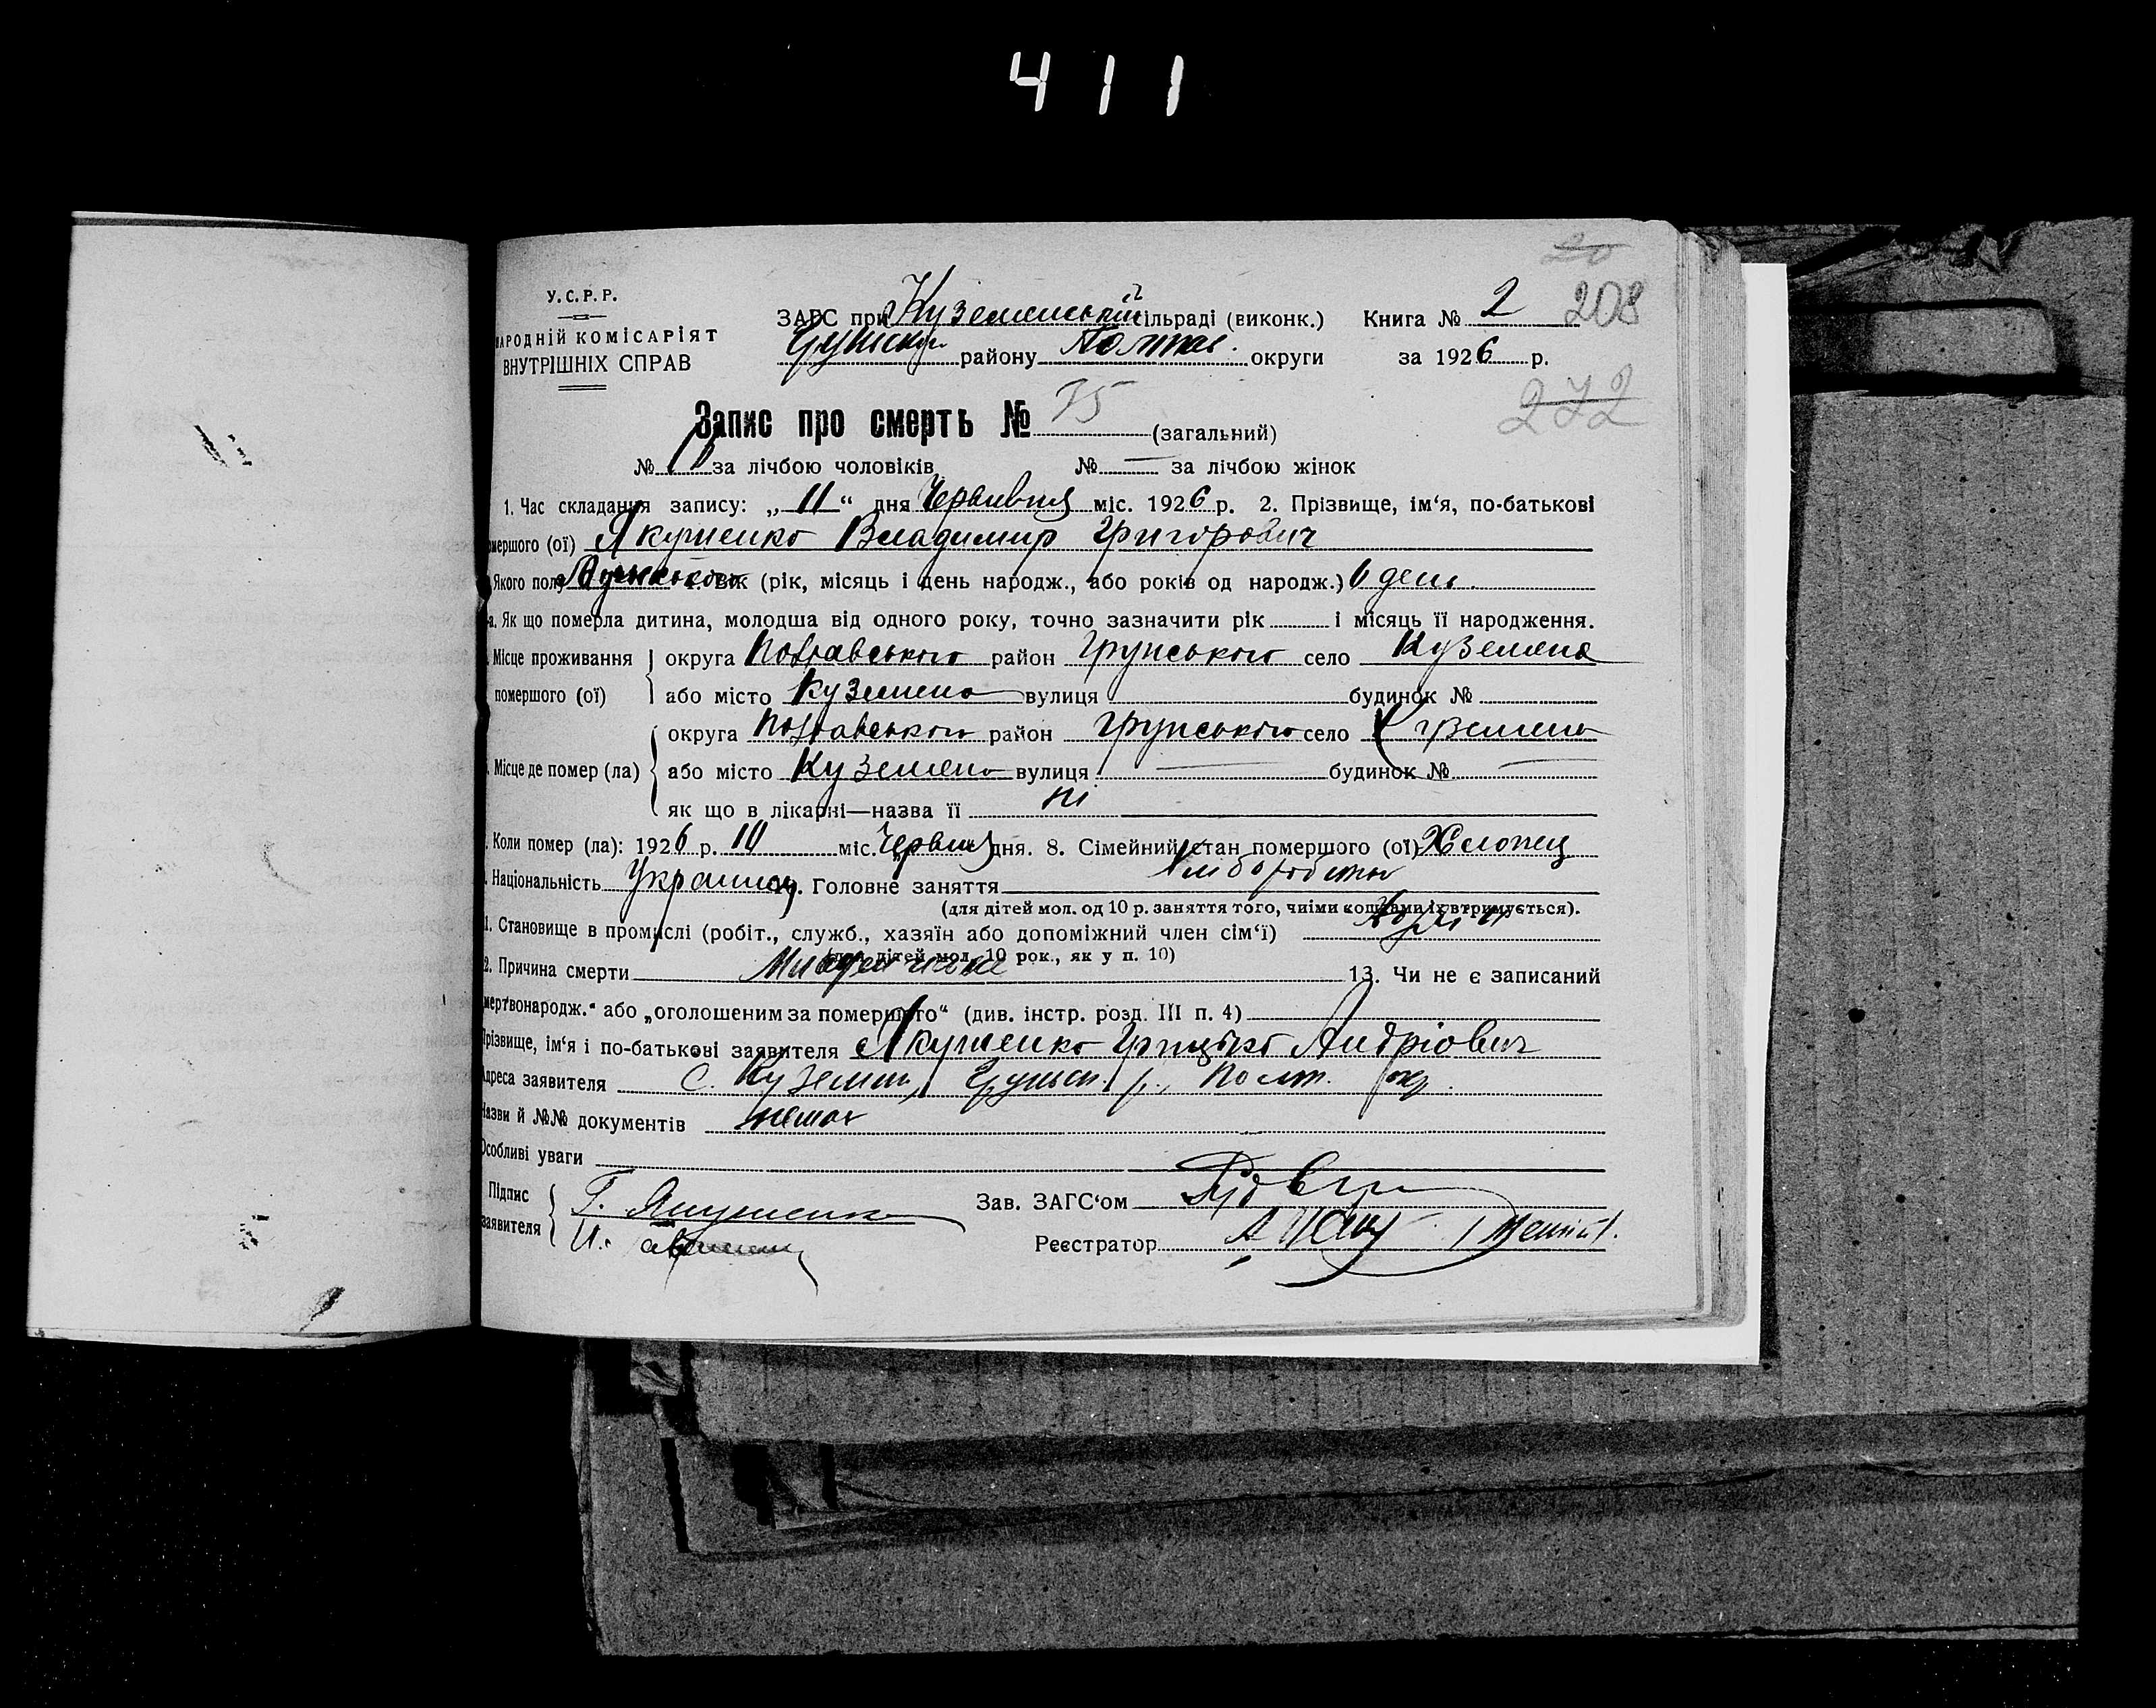 411
20
У.С.Р.Р.
ЗАГС при Куземенській сільраді (виконк.) Книга № 2 208
АРОДНІЙ КОМІСАРІЯТ
ВНУТРІШНІХ СПРАВ
Грунськ. району Полтав. округи за 1926 р.
272
Запис про смерть № 75 (загальний)
№ за лічбою чоловіків № — за лічбою жінок
1. Час складання запису: „11“ дня Червня міс. 1926 р. 2. Прізвище, ім‘я, по-батькові
мершого (ої) Якушенко Владимир Григорович
Якого полу Мужського Вік (рік, місяць і день народж., або років од народж.) 6 день.
а. Як що померла дитина, молодша від одного року, точно зазначити рік і місяць її народження.
Місце проживання округа Полтавського район Грунського село Куземена
помершого (ої) або місто Куземена вулиця будинок №
округа Полтавського район Грунського село Куземена
Місце де помер (ла) або місто Куземена вулиця — будинок № —
як що в лікарні—назва її ні
Коли помер (ла): 1926 р. 10 міс. Червня дня. 8. Сімейний стан помершого (ої) Хлопец
Національність Украинец. Головне заняття Хлібороб
(для дітей мол. од 10 р. заняття того, чиїми коштами їх втримується).
1. Становище в промислі (робіт., служб., хазяїн або допоміжний член сім‘ї)
(для дітей мол. 10 рок., як у п. 10)
2. Причина смерти 13. Чи не є записаний
мертвонародж.“ або „оголошеним за помершого“ (див. інстр. розд. III п. 4)
Прізвище, ім‘я і по-батькові заявителя Якушенко Грицько Андріович
Адреса заявителя с. Куземин, Грунськ. р., Полт. окр.
Назви й №№ документів немає
Особливі уваги
Підпис Г. Якушенко Зав. ЗАГС‘ом
заявителя
Реєстратор